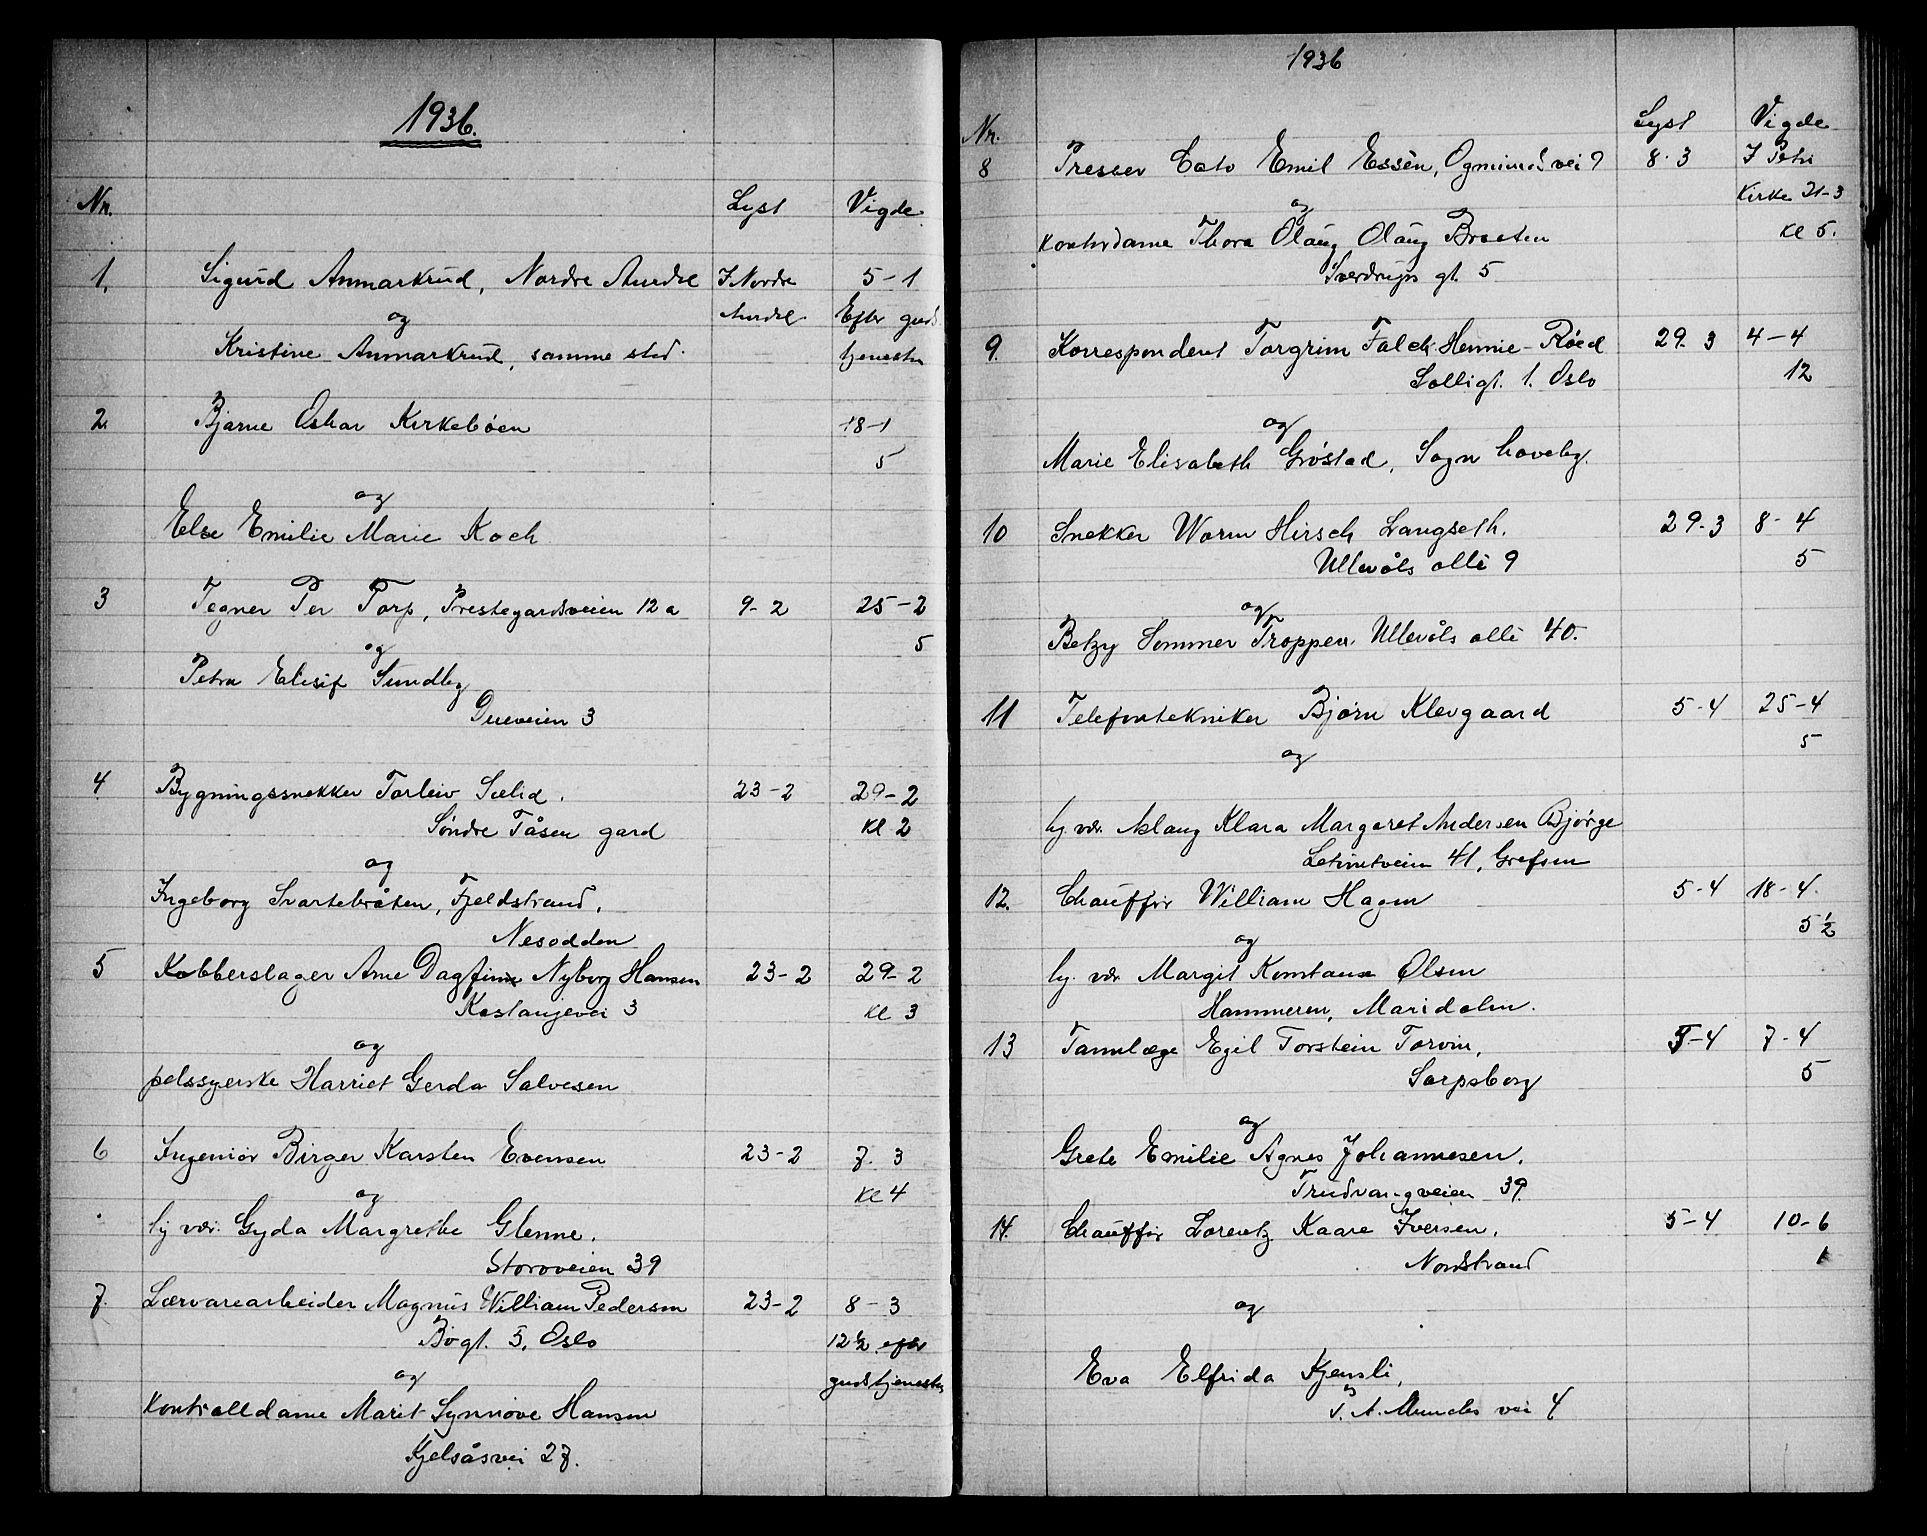 1936.
Nr. Lyst Vigde
1. Sigurd Anmarkrud, Nordre Aurdal I Nordre 5-1
og Aurdal Efter guds
Kristine Anmarkrud, samme sted. tjenesten
2. Bjarne Oskar Kirkebøen 18-1
5
og
Else Emilie Marie Koch
3 Tegner Per Torp, Prestegardsveien 12a 9-2 25-2
og 5
Petra Elisif Sundby
Dueveien 3
4 Bygningssnekker Torleiv Sælid. 23-2 29-2
Søndre Tåsen gard Kl 2
og
Ingeborg Svartebråten, Fjeldstrand,
Nesodden
5 Kobberslager Arne Dagfinn Nyborg Hansen 23-2 29-2
Kastanjevei 3 Kl 3
og
pelssyerske Harriet Gerda Salvesen
6 Ingeniør Birger Karsten Evensen 23-2 7.3
og Kl 4
hj. vær. Gyda Margrethe Glenne.
Storoveien 39
7. Lærvarearbeider Magnus William Pedersen 23-2 8-3
Bogt. 5, Oslo 12 1/2 efter
og gudstjenesten
Kontrolldame Marit Synnøve Hansen
Kjelsåsvei 27.
1936
Nr. Lyst Vigde
8 Presser Cato Emil Essén, Ogmunds vei 9 8.3 I Petri
og Kirke 21-3
Kontordame Thora Olaug Olaug Braaten Kl 5.
Sverdrups gt. 5
9. Korrespondent Torgrim Falck Hennie-Røed 29.3 4-4
Solligt. 1. Oslo 12
og
Marie Elisabeth Grøstad, Sogn haveby.
10 Snekker Worm Hirsch Langseth. 29-3 8-4
Ullevåls alle 9 5
og
Betzy Sommer Troppen Ullevåls alle 40.
11 Telefontekniker Bjørn Klevgaard 5-4 25-4
og 5
hj. vær. Aslaug Klara Margaret Andersen Bjørge
41, Grefsen
12. Chauffør William Hagen 5-4 18-4.
og 5 1/2
hj. vær Margit Konstanse Olsen
Hammeren, Maridalen.
13 Tannlæge Egil Torstein Torvin, 5-4 7-4
Sarpsborg 5
og
Grete Emilie Agnes Johannesen.
Trudvangveien 39
14. Chauffør Lorentz Kaare Iversen. 5-4 10-6
Nordstrand 1
og
Eva Elfrida Kjensli,
P. A. Munchs vei 4